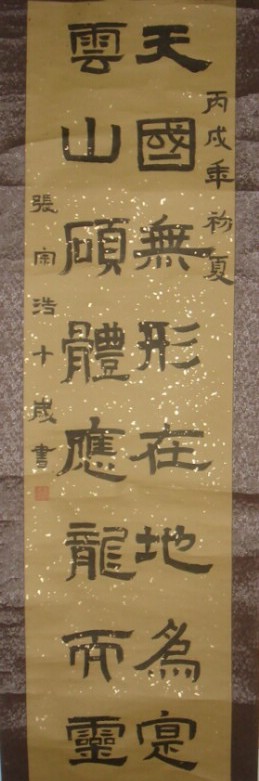 丙戌年初夏
天國無形在地為寔
雲山碩體應龍而靈
張浩十歲書